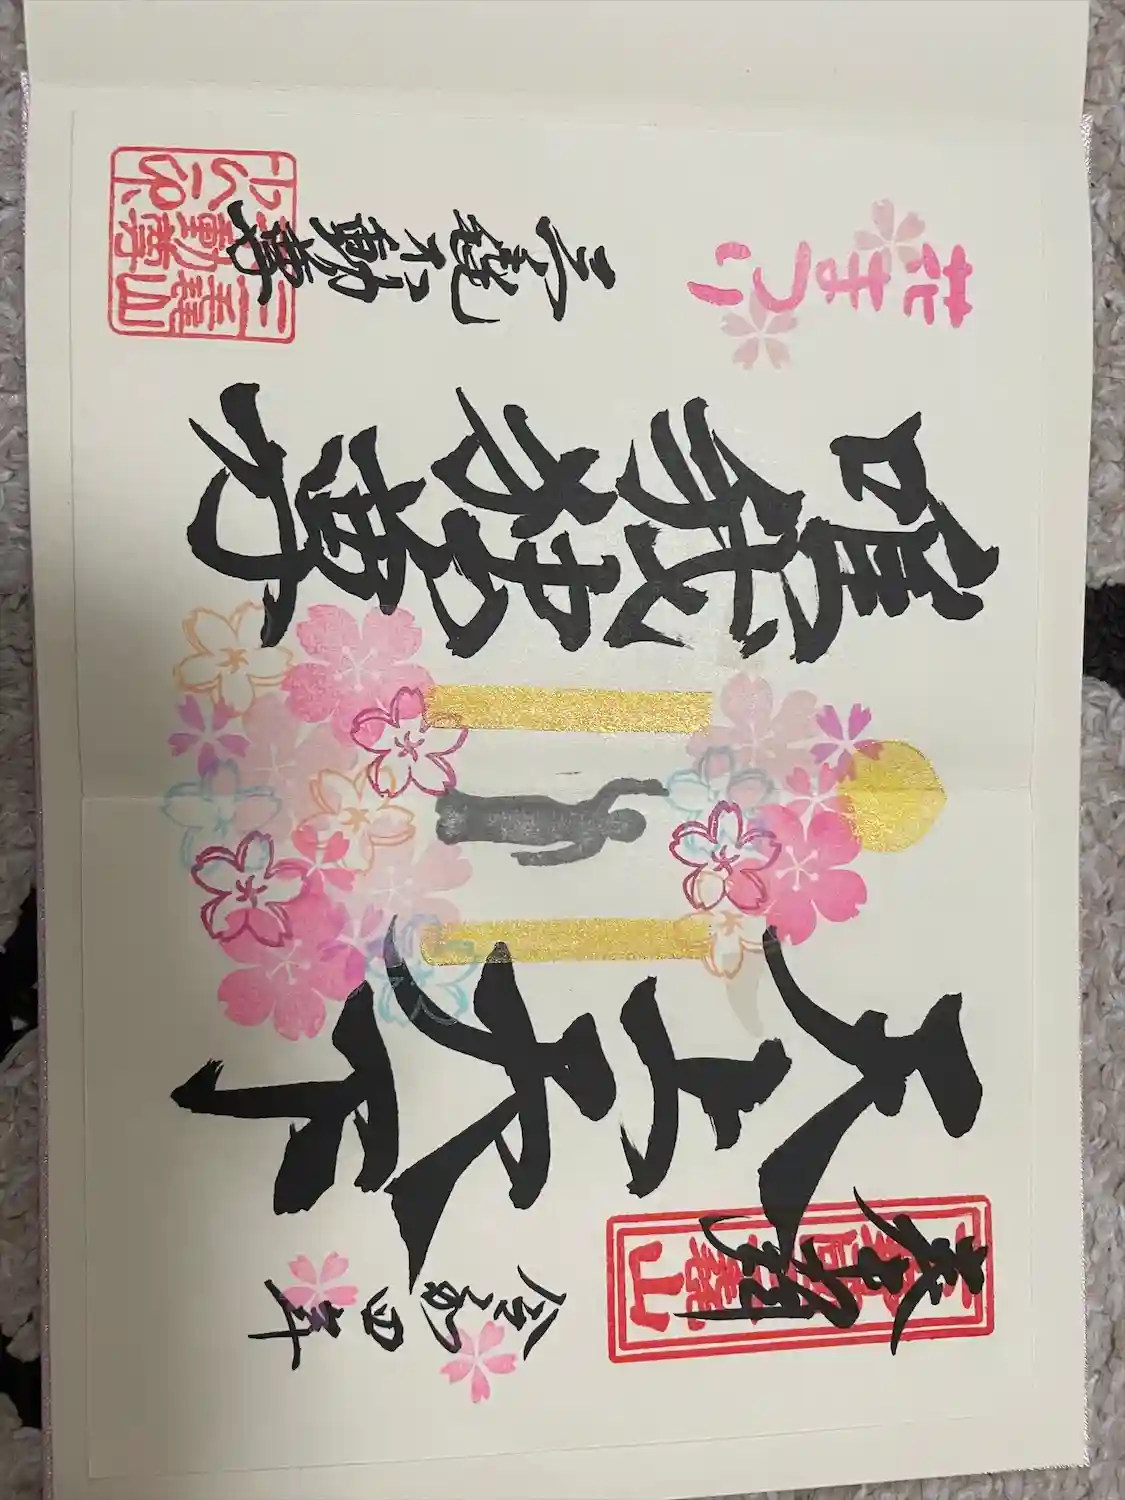 奉拝
令和四年
天上天下
唯我独尊
花まつり
三瀧不動尊